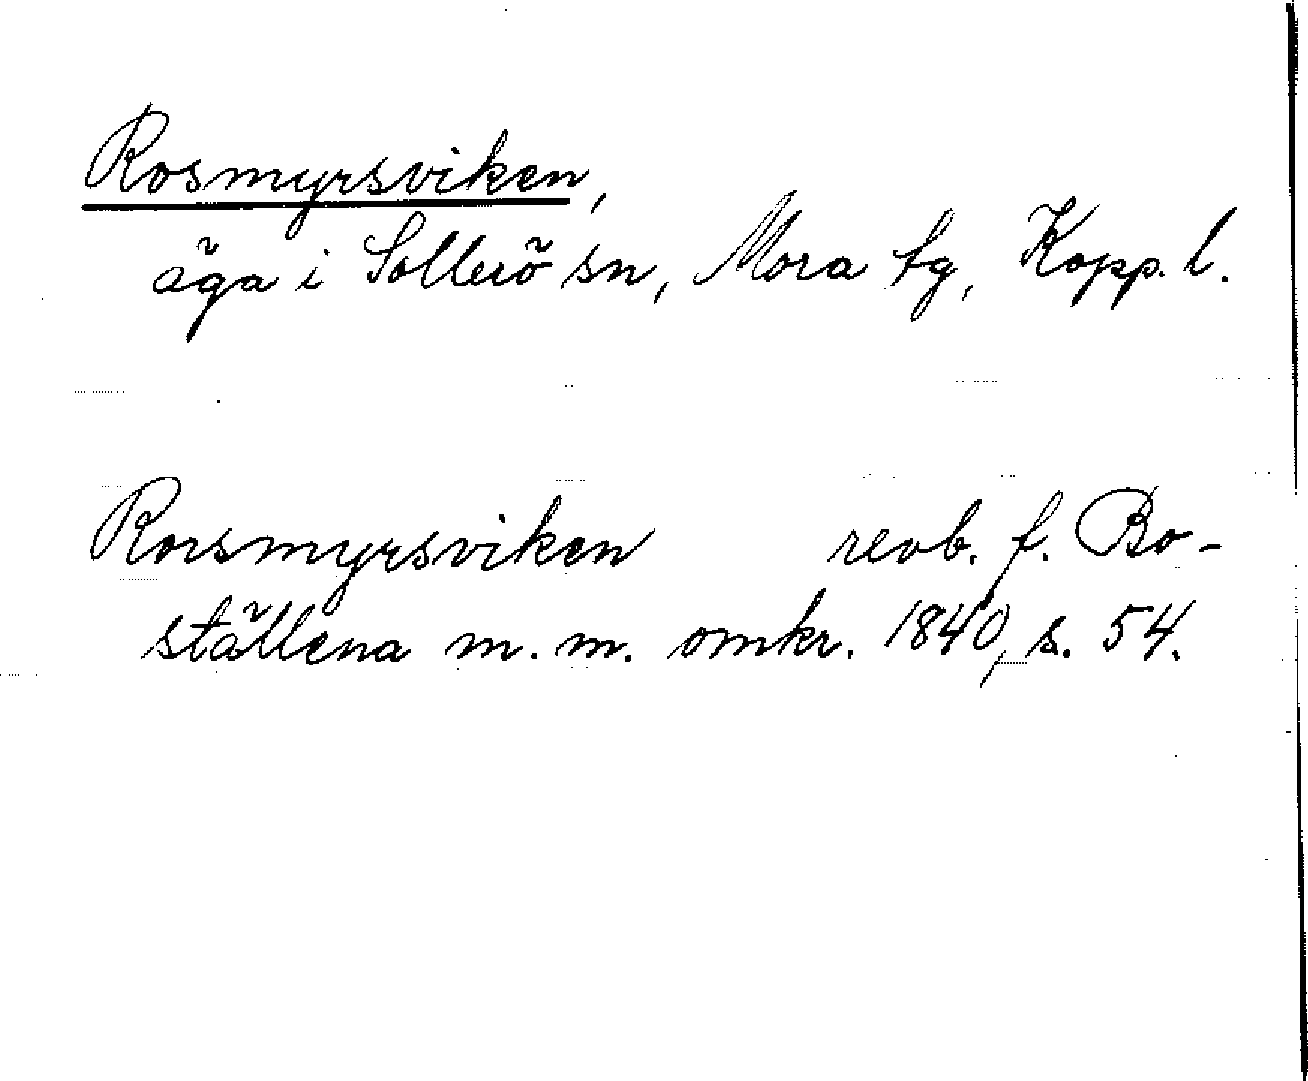 Rosmyrsviken,
äga i Sollerö sn, Mora tg, Kopp. l.
Rorsmyrsviken revb. f. Bo-
ställena m. m. omkr. 1840, s. 54.